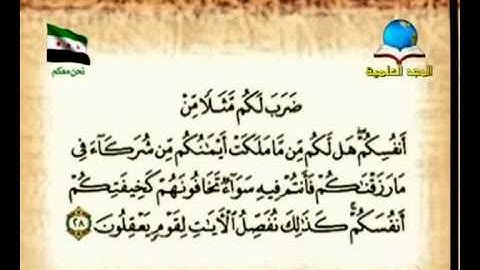 نحن معكم
المجد العلمية
ضَرَبَ لَكُم مَّثَلًا مِّنْ
أَنفُسِكُمْ ۖ هَل لَّكُم مِّن مَّا مَلَكَتْ أَيْمَٰنُكُم مِّن شُرَكَآءَ فِى
مَا رَزَقْنَٰكُمْ فَأَنتُمْ فِيهِ سَوَآءٌ تَخَافُونَهُمْ كَخِيفَتِكُمْ
أَنفُسَكُمْ ۚ كَذَٰلِكَ نُفَصِّلُ ٱلْءَايَٰتِ لِقَوْمٍ يَعْقِلُونَ ٢٨